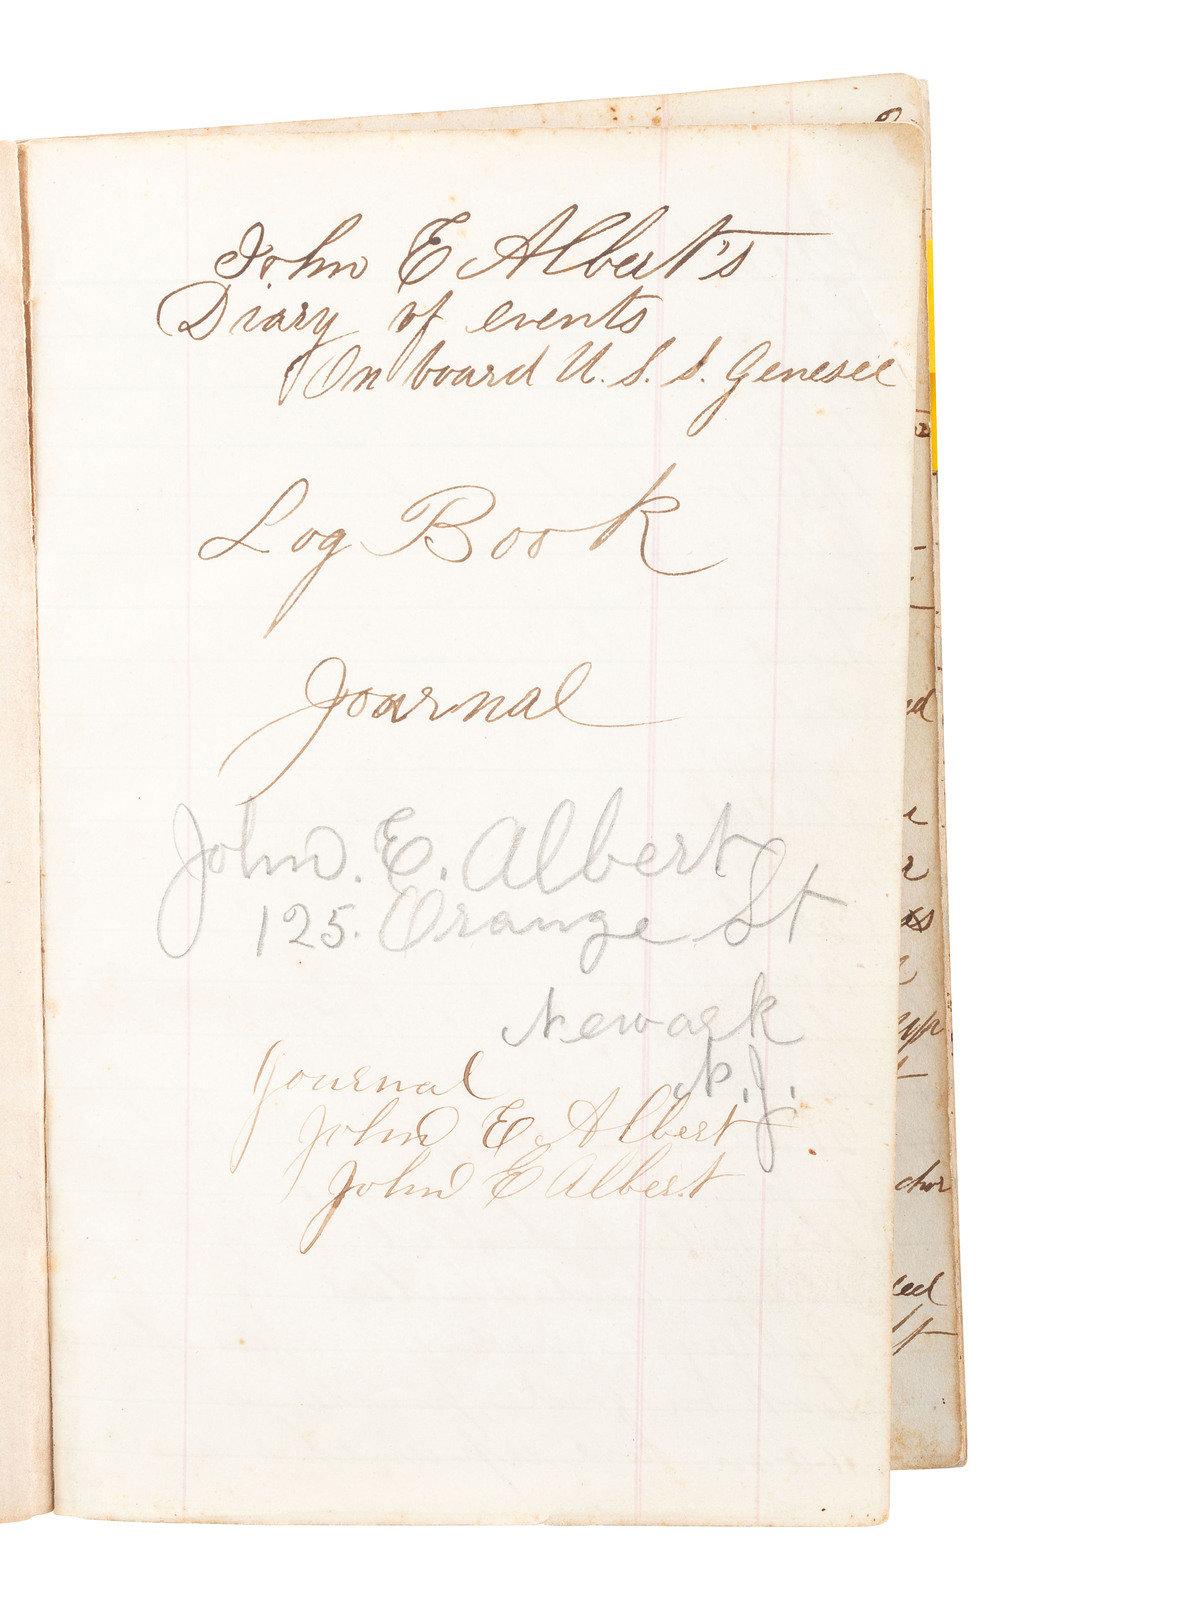 John E Albert's
Diary of events
On board U. S. S. Genesee
Log Book
Journal
John. E. Albert
125. Orange St
Newark
N.J.
Journal
John E Albert
John E Albert